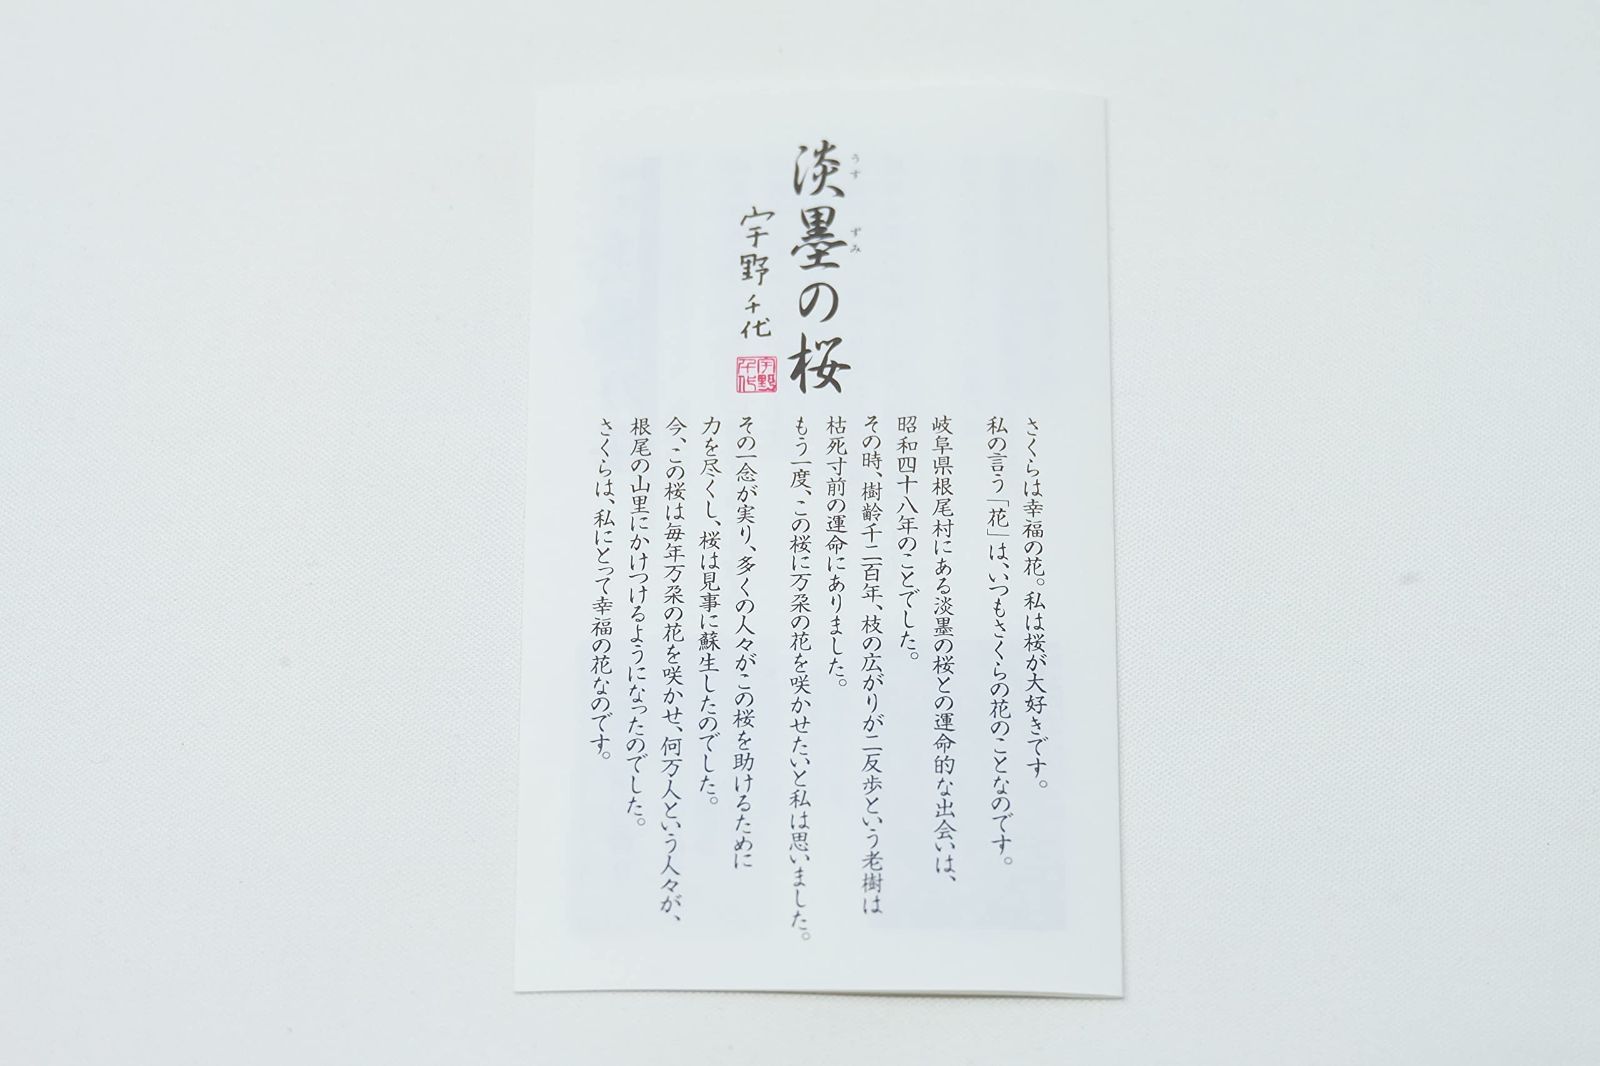 淡墨の桜
うすずみ
宇野千代
宇野千代
さくらは幸福の花。私は桜が大好きです。
私の言う「花」は、いつもさくらの花のことなのです。
岐阜県根尾村にある淡墨の桜との運命的な出会いは、
昭和四十八年のことでした。
その時、樹齢千二百年、枝の広がりが二反歩という老樹は
枯死寸前の運命にありました。
もう一度、この桜に万朶の花を咲かせたいと私は思いました。
その一念が実り、多くの人々がこの桜を助けるために
力を尽くし、桜は見事に蘇生したのでした。
今、この桜は毎年万朶の花を咲かせ、何万人という人々が、
根尾の山里にかけつけるようになったのでした。
さくらは、私にとって幸福の花なのです。